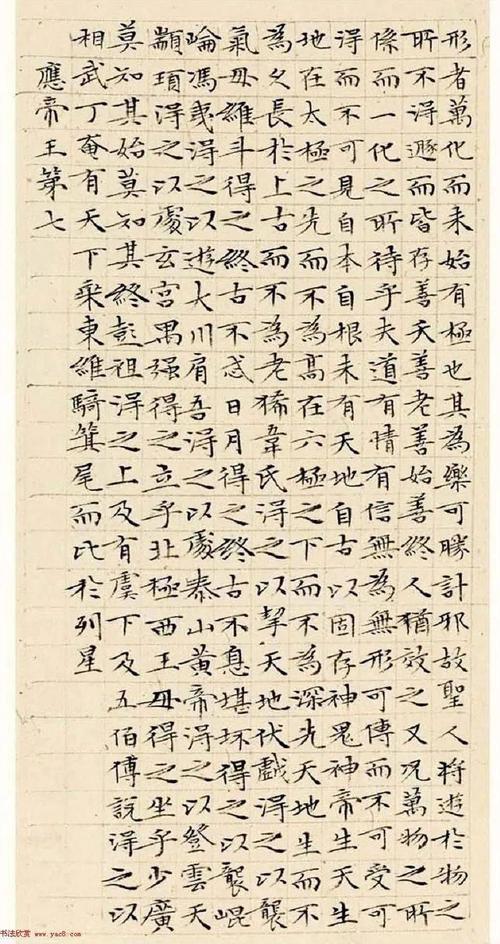 形者萬化而未始有極也其為樂可勝計邪故聖人將遊於物之
所不得遯而皆存善夭善老善始善終人猶效之又況萬物之所
係而一化之所待乎夫道有情有信無為無形可傳而不可受可
得而不可見自本自根未有天地自古以固存神鬼神帝生天生
地在太極之先而不為高在六極之下而不為深先天地生而不
為久長於上古而不為老狶韋氏得之以挈天地伏戲得之以襲
氣母維斗得之終古不忒日月得之終古不息堪坏得之以襲崐
崘馮夷得之以遊大川肩吾得之以處泰山黃帝得之以登雲天
顓頊得之以處玄宮禺强得之立乎北極西王母得之坐乎少廣
莫知其始莫知其終彭祖得之上及有虞下及五伯傅說得之以
相武丁奄有天下乘東維騎箕尾而比於列星
應帝王第七
书法欣赏
www.yac8.com